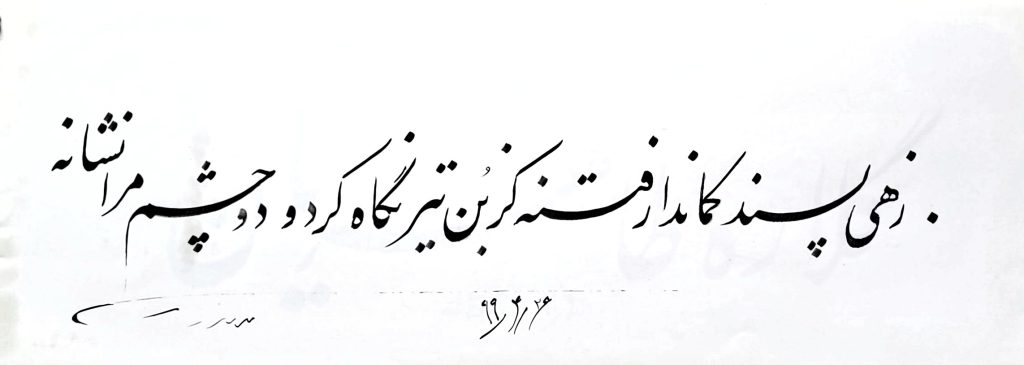 زهی پسند کماندار فتنه کز بُن تیر نگاه کرد و دو چشم مرا نشانه
۹۹/۴/۲۶